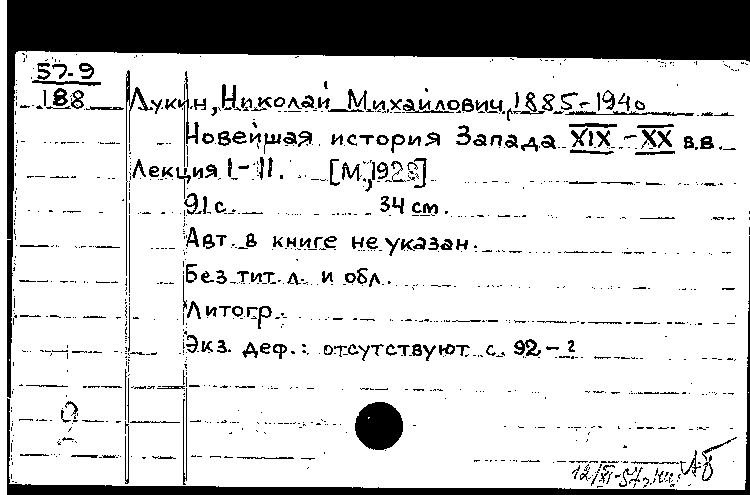 57-9
188
Лукин, Николай Михайлович, 1885-1940
Новейшая история Запада XIX-XX в.в.
Лекция I-II. [М., 1928]
91 с. 34 см.
Авт. в книге не указан.
Без тит. л. и обл.
Литогр.
Экз. деф.: отсутствуют с. 92-?
12/XI-57г.